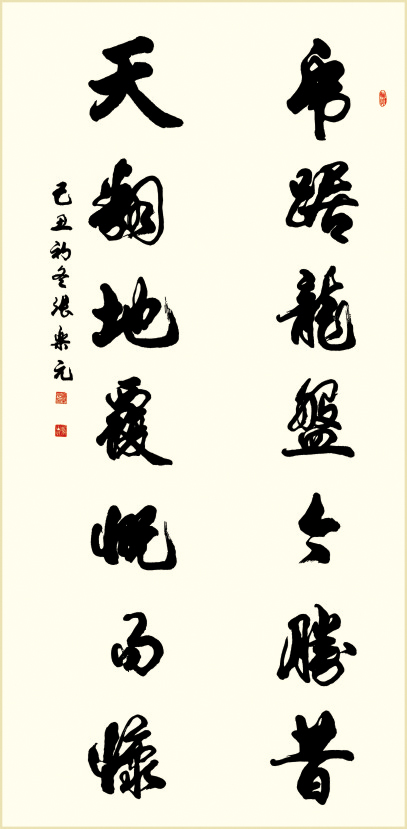 虎踞龍盤今勝昔
天翻地覆慨而慷
己丑初冬張樂元